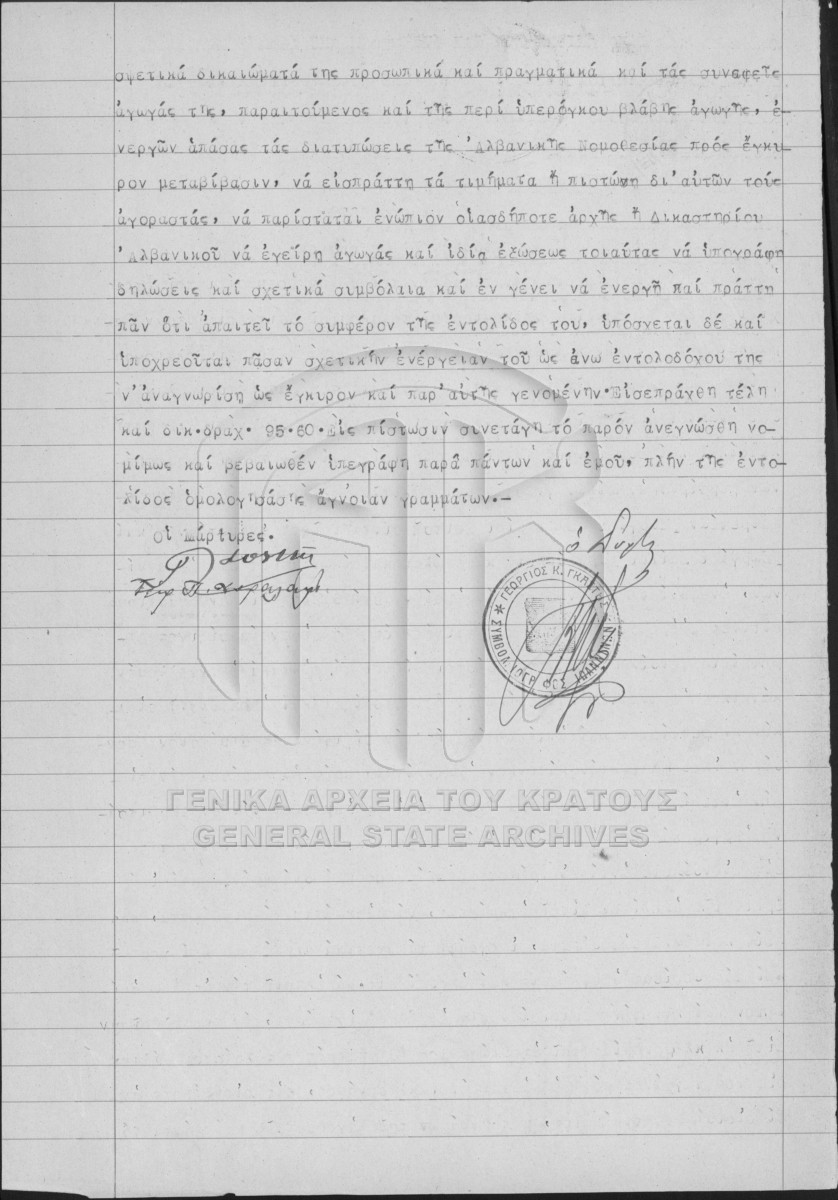 σχετικά δικαιώματά της προσωπικά καί πραγματικά καί τάς συναφεῖς
ἀγωγάς της, παραιτούμενος καί τῆς περί ὑπερόγκου βλάβης ἀγωγῆς, ἐ-
νεργῶν ἁπάσας τάς διατυπώσεις τῆς Ἀλβανικῆς Νομοθεσίας πρός ἔγκυ-
ρον μεταβίβασιν, νά εἰσπράττη τά τιμήματα ἤ πιστώνη δι'αὐτῶν τούς
ἀγοραστάς, νά παρίσταται ἐνώπιον οἱασδήποτε ἀρχῆς ἤ Δικαστηρίου
Ἀλβανικοῦ νά ἐγείρη ἀγωγάς καί ἰδία ἐξώσεως τοιαύτας νά ὑπογράφη
δηλώσεις καί σχετικά συμβόλαια καί ἐν γένει νά ἐνεργῆ καί πράττη
πᾶν ὅτι ἀπαιτεῖ τό συμφέρον τῆς ἐντολίδος του, ὑπόσχεται δέ καί
ὑποχρεοῦται πᾶσαν σχετικήν ἐνέργειαν τοῦ ὡς ἄνω ἐντολοδόχου της
ν'ἀναγνωρίση ὡς ἔγκυρον καί παρ'αὐτῆς γενομένην.Εἰσεπράχθη τέλη
καί δικ.δραχ. 95.60.Εἰς πίστωσιν συνετάγη τό παρόν ἀνεγνώσθη νο-
μίμως καί βεβαιωθέν ὑπεγράφη παρά πάντων καί ἐμοῦ, πλήν τῆς ἐντο-
λίδος ὁμολογησάσης ἄγνοιαν γραμμάτων.-
οἱ μάρτυρες.
ΓΕΩΡΓΙΟΣ Κ.
ΙΩΑΝΝΙΝΩΝ
ΓΕΝΙΚΑ ΑΡΧΕΙΑ ΤΟΥ ΚΡΑΤΟΥΣ
GENERAL STATE ARCHIVES